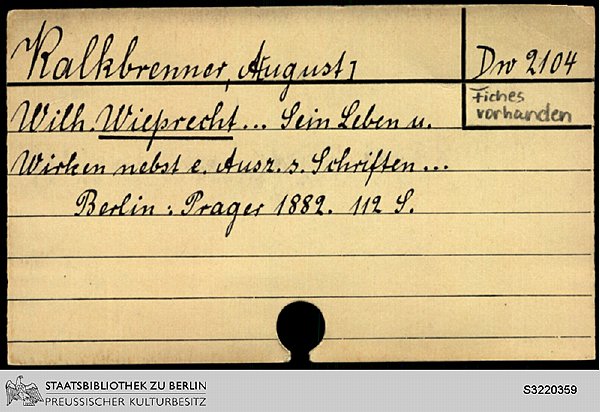 Kalkbrenner, August]
Dw 2104
Fiches
vorhanden
Wilh. Wieprecht... Sein Leben u.
Wirken nebst e. Ausz. s. Schriften...
Berlin: Prager 1882. 112 S.
STAATSBIBLIOTHEK ZU BERLIN
PREUSSISCHER KULTURBESITZ
S3220359